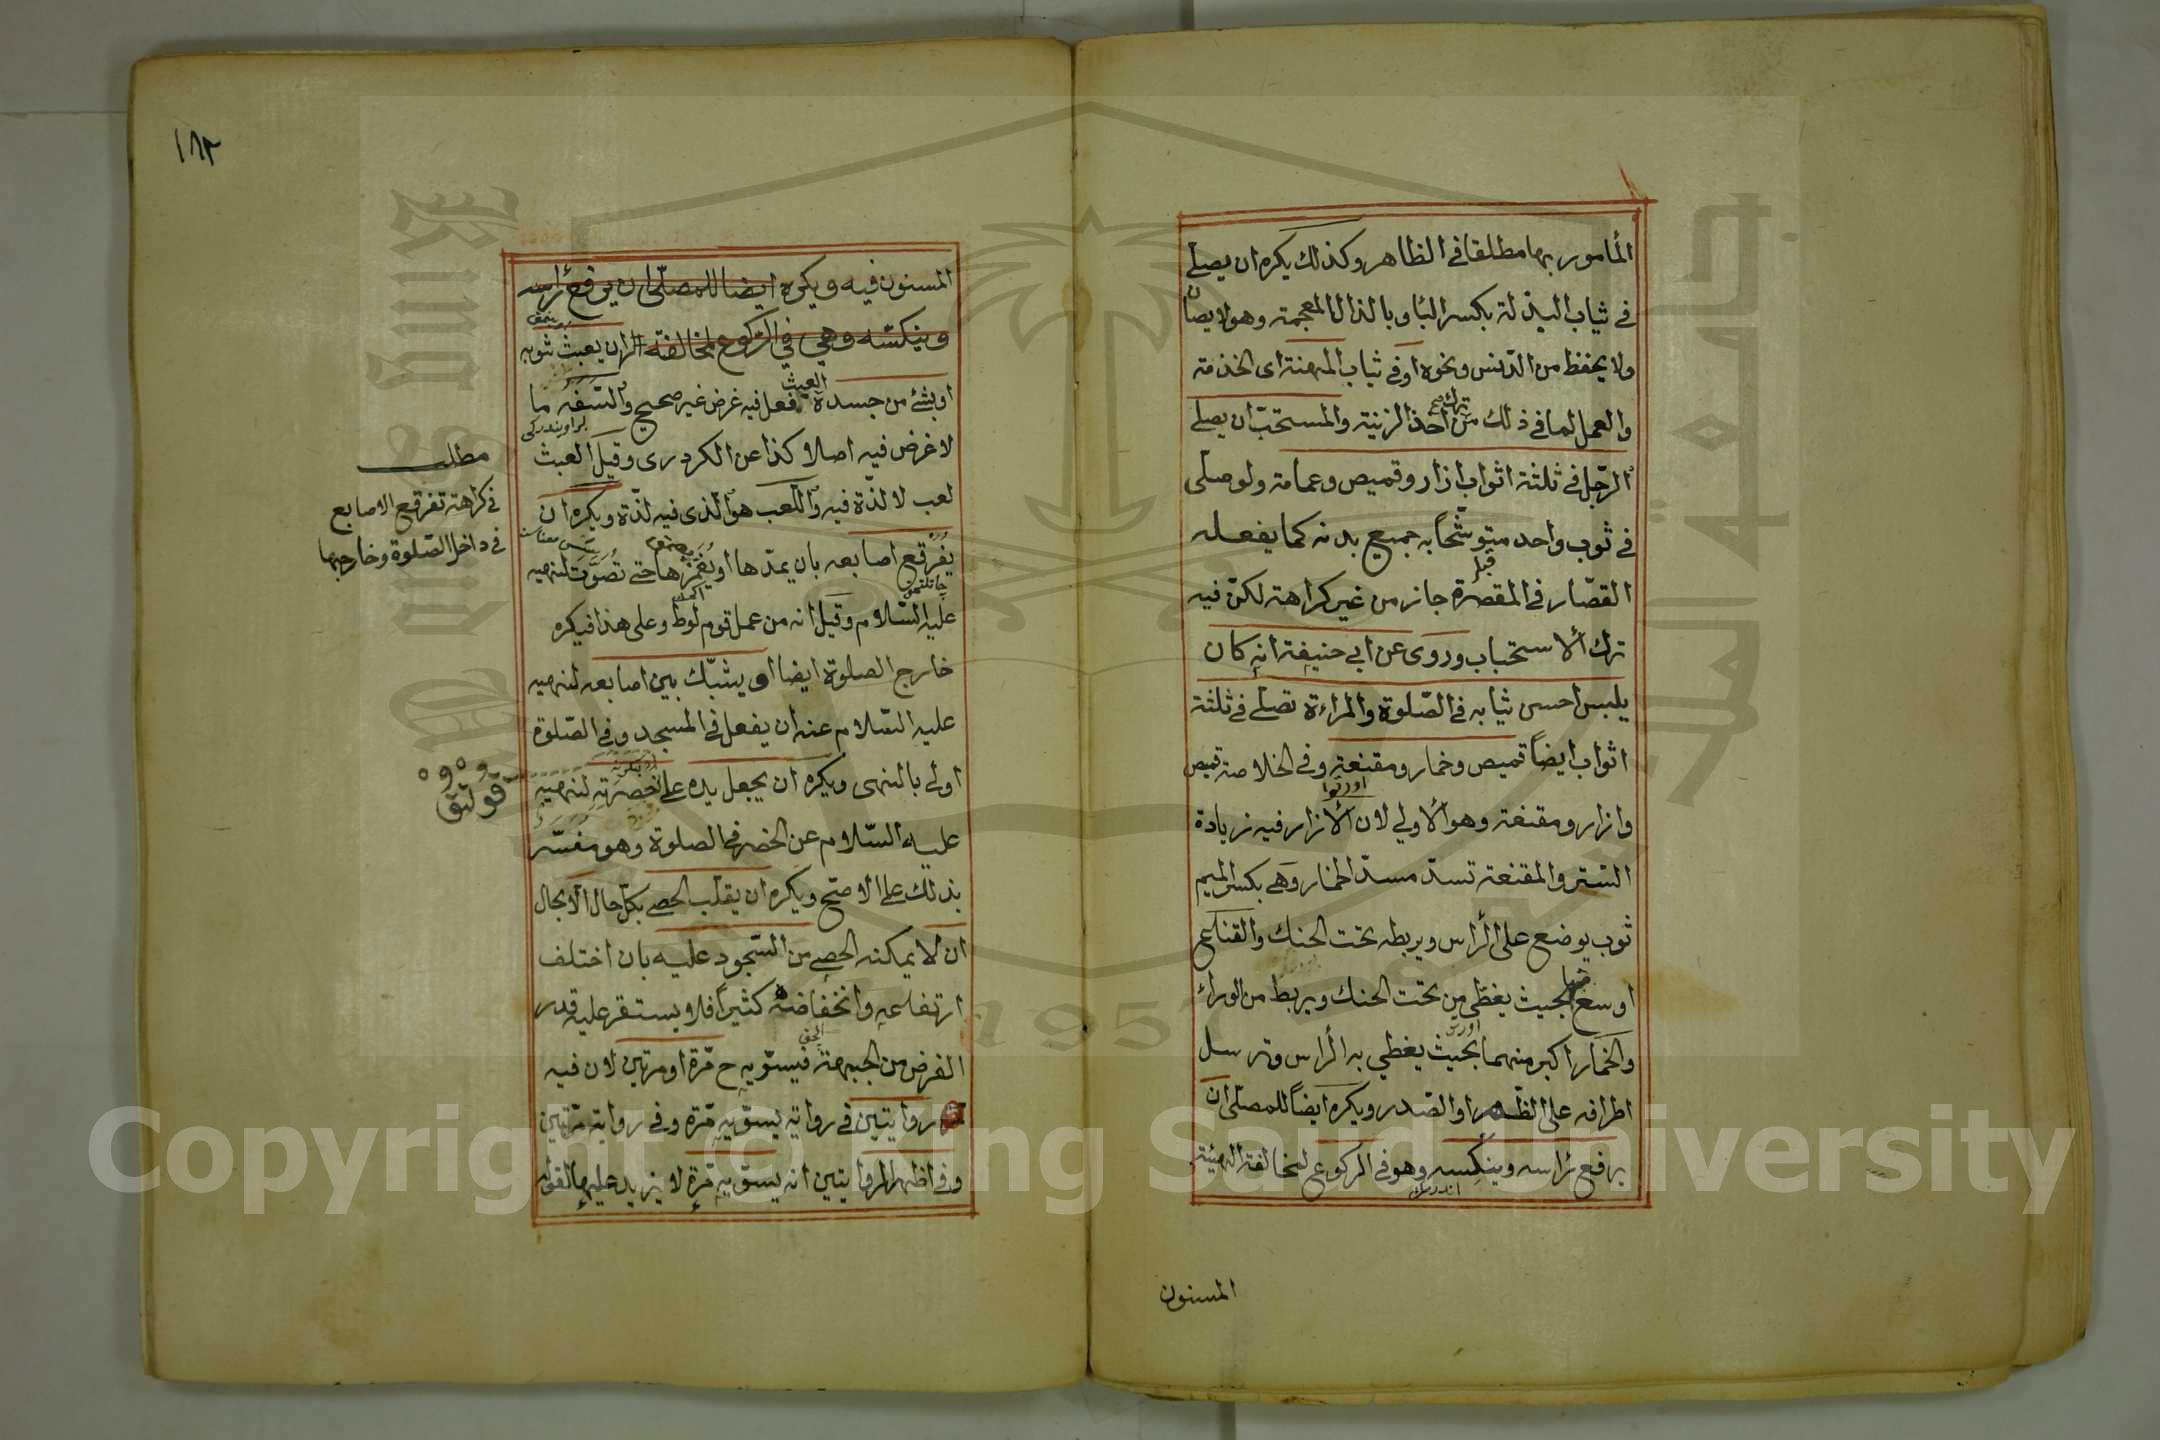 المأمور بها مطلقا فى الظاهر وكذلك يكره ان يصلى
فى ثياب البذلة بكسر الباء وبالذال المعجمة وهو لا يصان
ولا يحفظ من الدنس ونحوه او فى ثياب المهنة اى الخدمة
والعمل لما فى ذلك من ترك اخذ الزنية والمستحبّ ان يصلى
الرّجل فى ثلثة اثواب ازار وقميص وعمامة ولو صلّى
فى ثوب واحد متوشّحًا به جميع بدنه كما يفعله
القصّار فى المقصرة جاز من غير كراهة لكن فيه
ترك الاستحباب وروى عن ابى حنيفة انه كان
يلبس احسن ثيابه فى الصّلوة والمراءة تصلى فى ثلثة
اثواب ايضًا قميص وخمار ومقنعة وفى الخلاصة قميص
وازار ومقنعة وهو الاولى لان الازار فيه زيادة
الستر والمقنعة تسدّ مسدّ الخمار وهى بكسر الميم
ثوب يوضع على الراس ويربط تحت الحنك والقناع
اوسع منها بحيث يغطى من تحت الحنك ويربط من الوراء
والخمار اكبر منهما بحيث يغطى به الراس وترسل
اطرافه على الظهر او الصّدر ويكره ايضًا للمصلّى ان
يرفع رأسه وينكسه وهو فى الركوع لمخالفة الهيئة
المسنون
١٨٢
المسنون فيه ويكره ايضا للمصلّى ان يرفع رأسه
وينكسه وهى فى الرّكوع لمخالفة ان يعبث ثوبه
او بشئ من جسده العبث فعل فيه غرض غير صحيح والسّفه ما
لا غرض فيه اصلا كذا عن الكردرى وقيل العبث
لعب لا لذّة فيه واللّعب هو الّذى فيه لذّة ويكره ان
يفرقع اصابعه بان يمدّها او يغمزها حتى تصوّت لنهيه
عليه السّلام وقيل انه من عمل قوم لوط وعلى هذا فيكره
خارج الصلوة ايضا او يشبّك بين اصابعه لنهيه
عليه السّلام عنه ان يفعل فى المسجد وفى الصّلوة
اولى بالنهى ويكره ان يجعل يده على خصرته لنهيه
عليه السّلام عن الخصر فى الصلوة وهو مفسّر
بذلك على الاصحّ ويكره ان يقلّب الحصى بكلّ حال الا بحال
ان لا يمكنه الحصى من السّجود عليه بان اختلف
ارتفاعه وانخفاضه كثيرا فلا يستقر عليه قدر
الفرض من الجبهة فيسوّيه ح مرّة او مرتين لان فيه
روايتين فى رواية يسوّيه مرّة وفى رواية مرّتين
وفى اظهر الروايتين انه يسوّيه مرّة لا يزيد عليها لقوله
مطلب
فى كراهة تفرقع الاصابع
فى داخل الصّلوة وخارجها
Copyright © King Saud University
1957